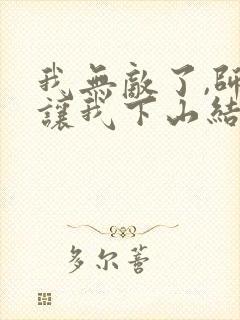 我無敵了,師
讓我下山結
多尔蓄